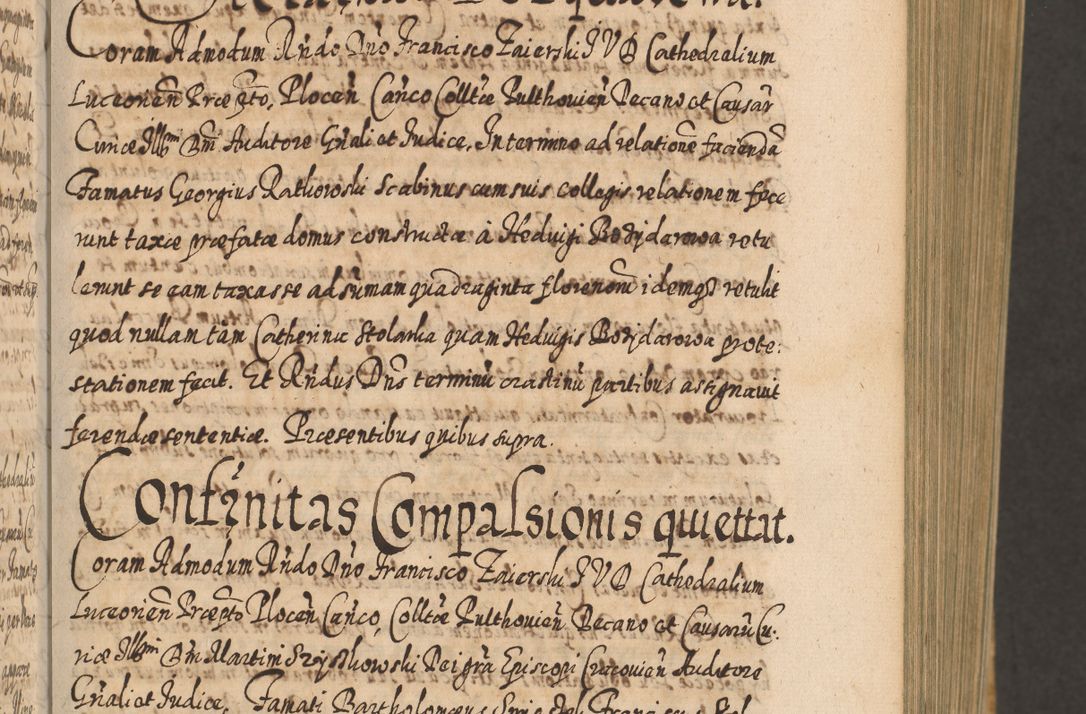 Coram Admodum Rńdo Dńo Francisco Zaierski I V D Cathedralium
Luceorień Præpto, Ploceń Cańco Colltæ Pulthovień Decano et Causar̃
Curiæ Illmi Dm̃i Auditore Gńali et Iudice, In termino ad relationẽ faciendã
Famatus Georgius Rathowski Scabinus cum suis collegis relationem fece
runt taxæ præfatæ domus constructæ à Hedvigi Bozydarowa retu
lerunt se eam taxasse ad sum̃am quadraginta florenorũ idemq3 retulit
quod nullam tam Catherina Stolarka quam Hedvigis Bozydarowa prote:
stationem fecit. Et Rńdus Dńs terminũ crastinũ partibus assignavit
ferendæ sententiæ. Præsentibus quibus supra.
Confr̃nitas Compalsionis quiettat.
Coram Admodum Rńdo Dńo Francisco Zaierski I V D Cathedralium
Luceorień Præpto Plocen̄ Cańco, Colltæ Pulthovień Decano et Causarũ Cu:
riæ Illmi Dm̃i Martini Szyszkowski Dei gr̃a Episcopi Cracovień Auditore
Gńali et Iudice, Famati Bartholomeus